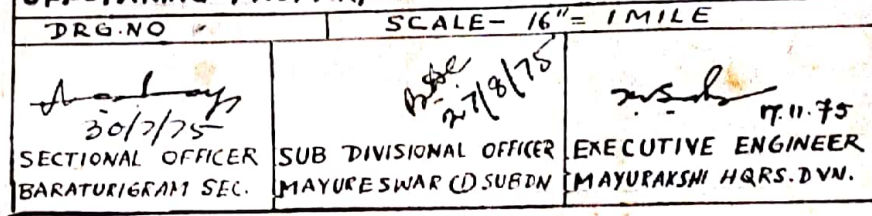 DRG.NO
SCALE- 16"= 1 MILE
30/7/75
SECTIONAL OFFICER
BARATURIGRAM SEC.
27/8/75
SUB DIVISIONAL OFFICER
MAYURESWAR (I) SUBDN
17.11.75
EXECUTIVE ENGINEER
MAYURAKSHI HQRS. DVN.